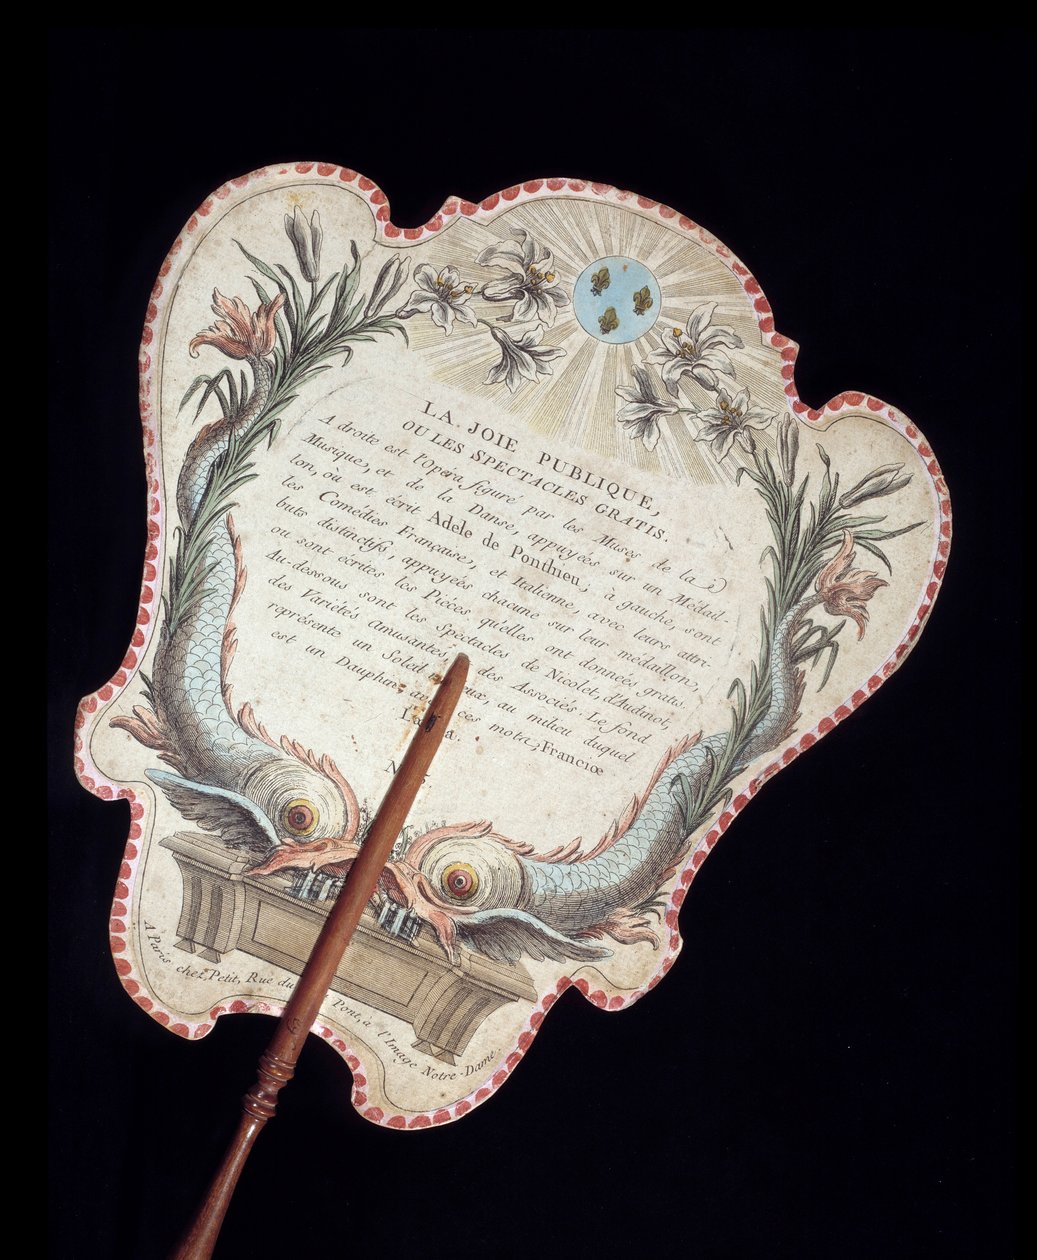 LA JOIE PUBLIQUE,
OU LES SPECTACLES GRATIS.
A droite est l'Opera figuré par les Muses de la
Musique, et de la Danse, appuyées sur un Médail-
lon, où est écrit Adele de Ponthieu, à gauche, sont
les Comédies Française, et Italienne, avec leurs attri-
buts distinctifs, appuyées chacune sur leur médaillon,
ou sont écrites les Piéces qu'elles ont donneés gratis.
Au-dessous sont les Spectacles de Nicolet, d'Audinot,
des Variétés Amusantes des Associés. Le fond
represente un Soleil au milieu duquel
est un Dauphin ces mots; Franciæ
A Paris chez Petit, Rue du Pont, a l'Image Notre-Dame.